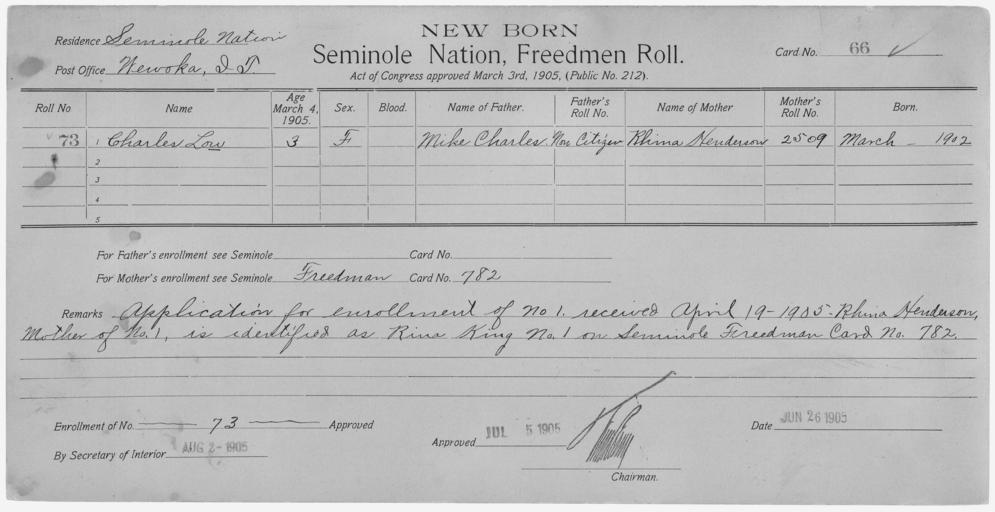 NEW BORN
Residence Seminole Nation
Seminole Nation, Freedmen Roll.
Card No. 66
Post Office Wewoka, I.T.
Act of Congress approved March 3rd, 1905, (Public No. 212).
Roll No Name Age March 4, 1905. Sex. Blood. Name of Father. Father's Roll No. Name of Mother Mother's Roll No. Born.
73 1 Charles Low 3 F Mike Charles. Non Citizen Rhina Henderson 2509 March - 1902
2
3
4
5
For Father's enrollment see Seminole Card No.
For Mother's enrollment see Seminole Freedman Card No. 782
Remarks Application for enrollment of No 1. received April 19-1905- Rhina Henderson,
Mother of No. 1, is identified as Rina King No. 1 on Seminole Freedman Card No. 782.
Enrollment of No. 73 Approved
By Secretary of Interior AUG 2- 1905
Approved JUL 5 1905
Chairman.
Date JUN 26 1905